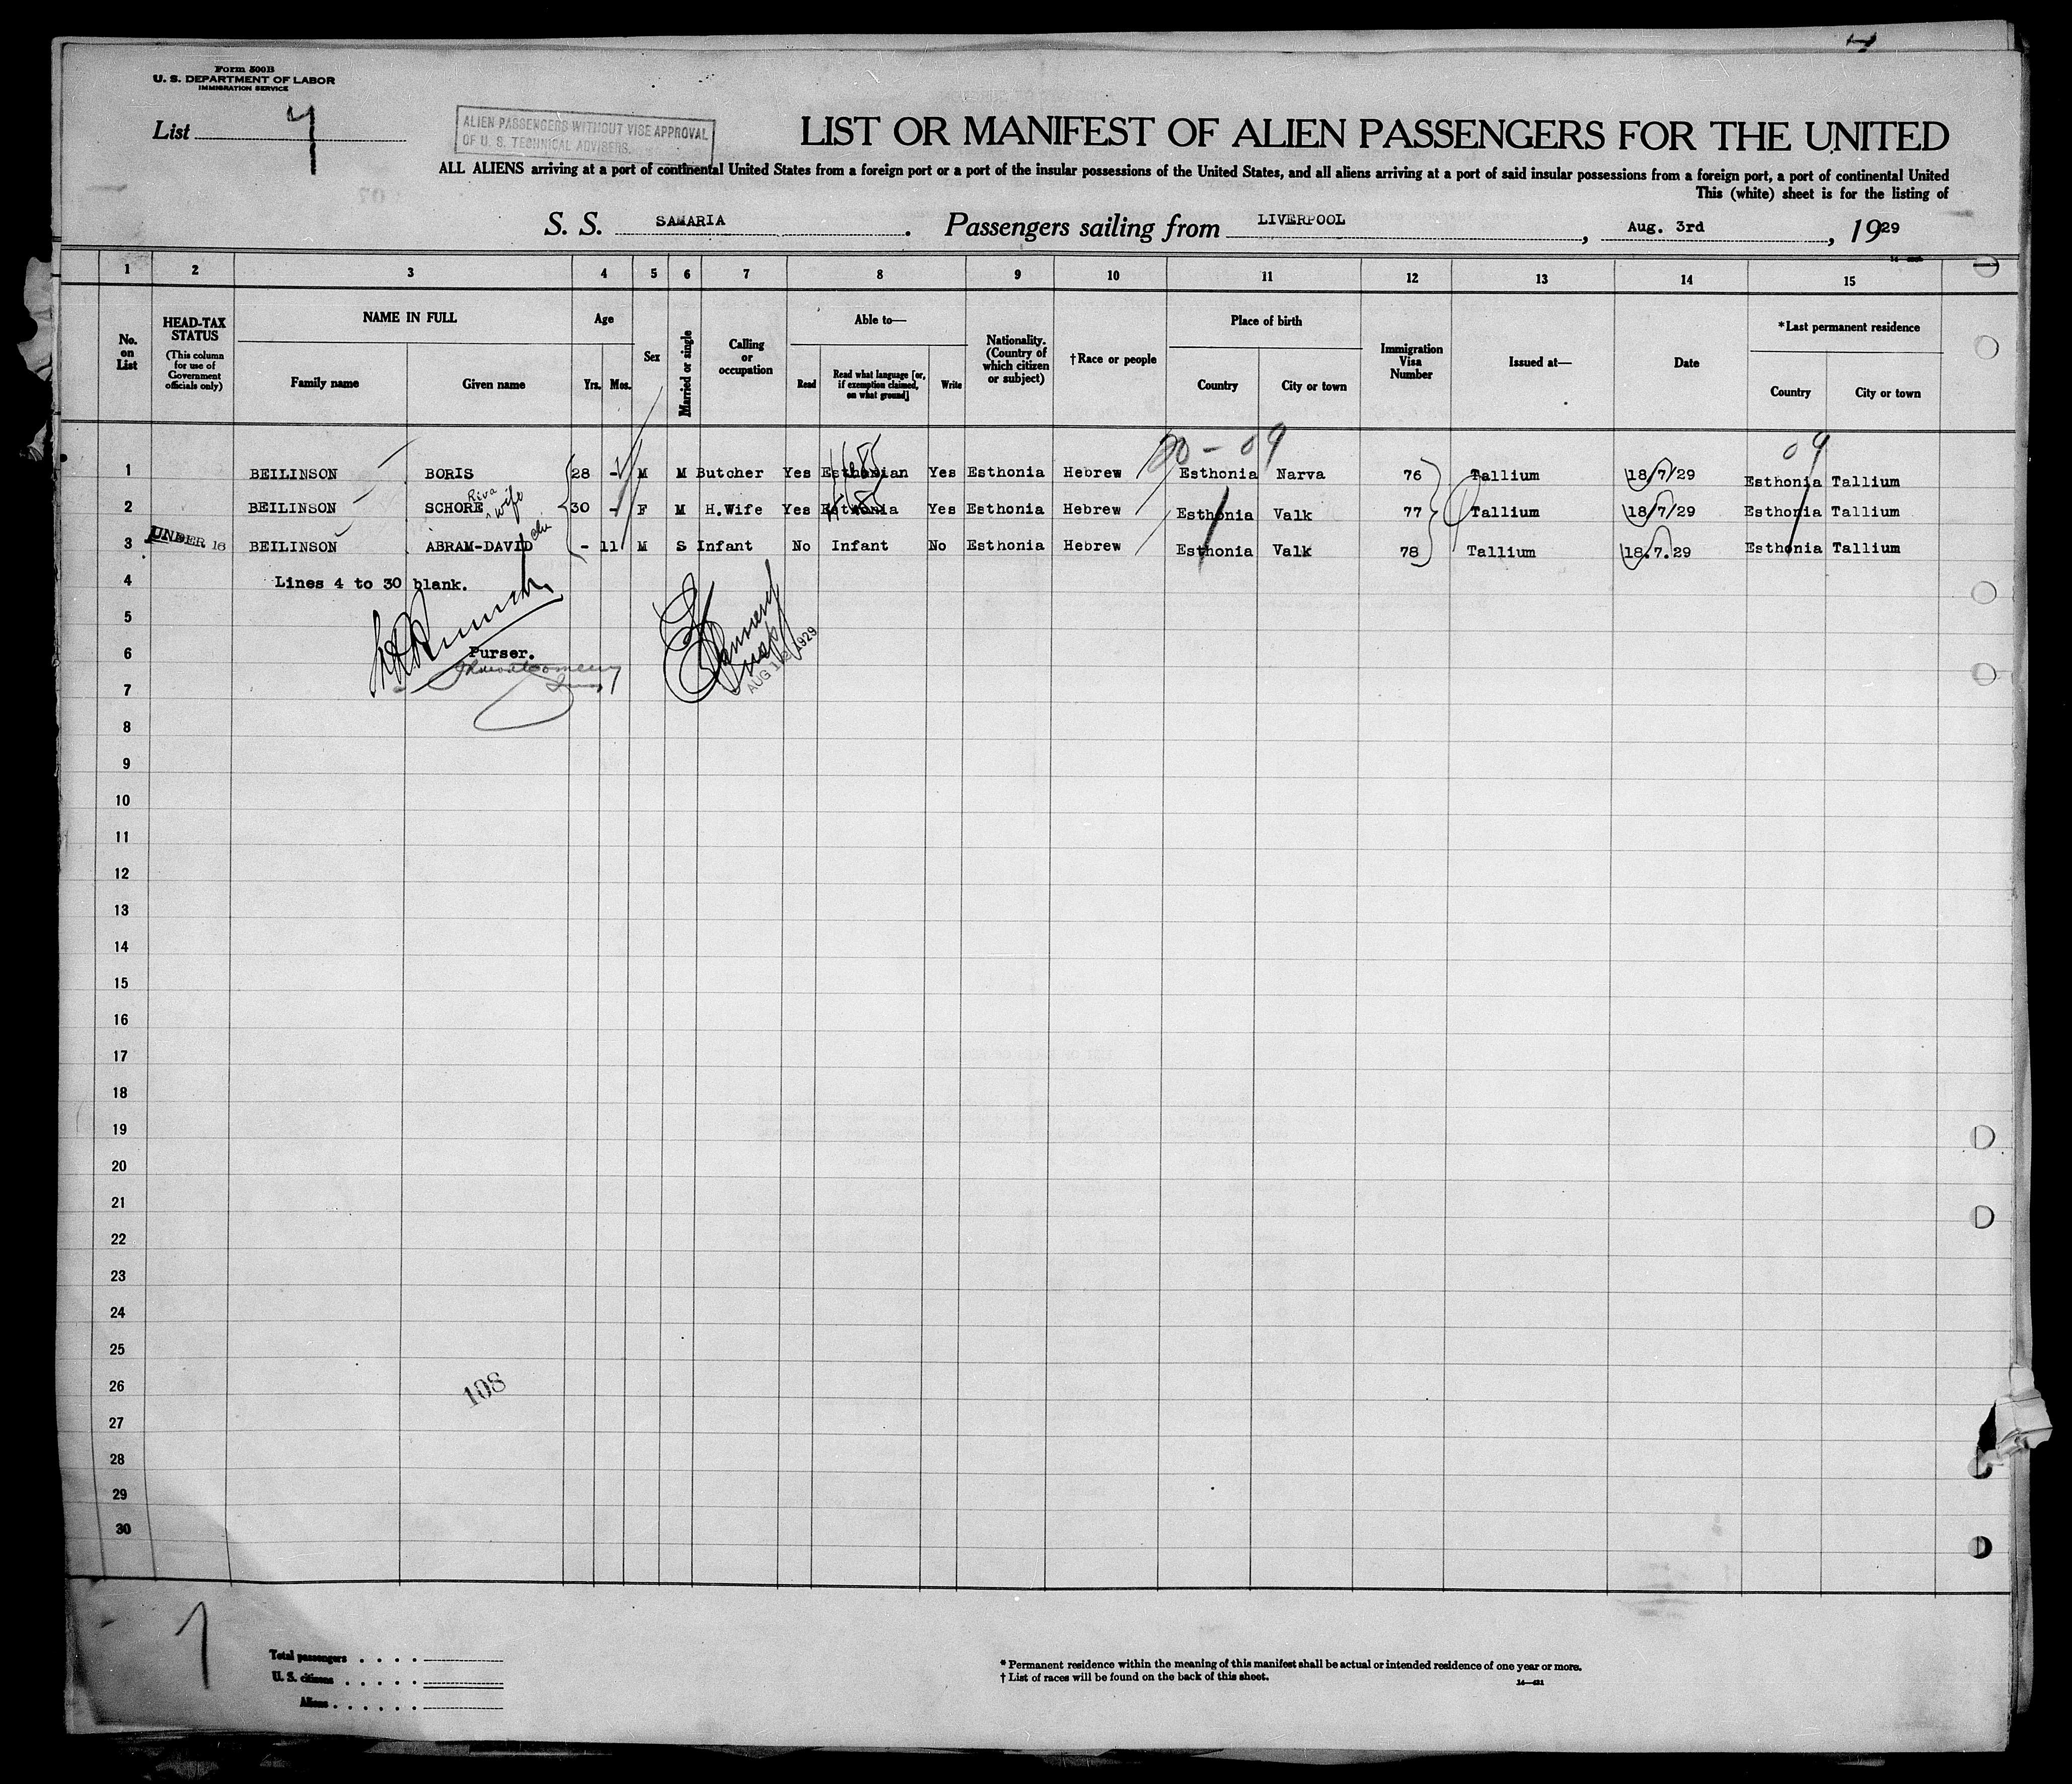 Form 500B
U. S. DEPARTMENT OF LABOR
IMMIGRATION SERVICE
List
ALIEN PASSENGERS WITHOUT VISE APPROVAL
OF U. S. TECHNICAL ADVISERS.
LIST OR MANIFEST OF ALIEN PASSENGERS FOR THE UNITED
ALL ALIENS arriving at a port of continental United States from a foreign port or a port of the insular possessions of the United States, and all aliens arriving at a port of said insular possessions from a foreign port, a port of continental United
This (white) sheet is for the listing of
S. S. SAMARIA . Passengers sailing from LIVERPOOL , Aug. 3rd , 1929
1 2 3 4 5 6 7 8 9 10 11 12 13 14 15
No. on List
HEAD-TAX STATUS (This column for use of Government officials only)
NAME IN FULL
Family name Given name
Age
Yrs. Mos.
Sex
Married or single
Calling or occupation
Able to—
Read
Read what language [or, if exemption claimed, on what ground]
Write
Nationality. (Country of which citizen or subject)
†Race or people
Place of birth
Country City or town
Immigration Visa Number
Issued at—
Date
*Last permanent residence
Country City or town
00 - 09 09
1 BEILINSON BORIS 28 - M M Butcher Yes Esthonian Yes Esthonia Hebrew Esthonia Narva 76 Tallium 18/7/29 Esthonia Tallium
2 BEILINSON SCHORE Riva wife 30 - F M H.Wife Yes Esthonia Yes Esthonia Hebrew Esthonia Valk 77 Tallium 18/7/29 Esthonia Tallium
3 UNDER 16 BEILINSON ABRAM-DAVID - 11 M S Infant No Infant No Esthonia Hebrew Esthonia Valk 78 Tallium 18.7.29 Esthonia Tallium
4 Lines 4 to 30 blank.
5
6 Purser.
AUG 1929
7
8
9
10
11
12
13
14
15
16
17
18
19
20
21
22
23
24
25
26
108
27
28
29
30
Total passengers . . . .
U. S. citizens . . . . .
Aliens . . . . . .
* Permanent residence within the meaning of this manifest shall be actual or intended residence of one year or more.
† List of races will be found on the back of this sheet.